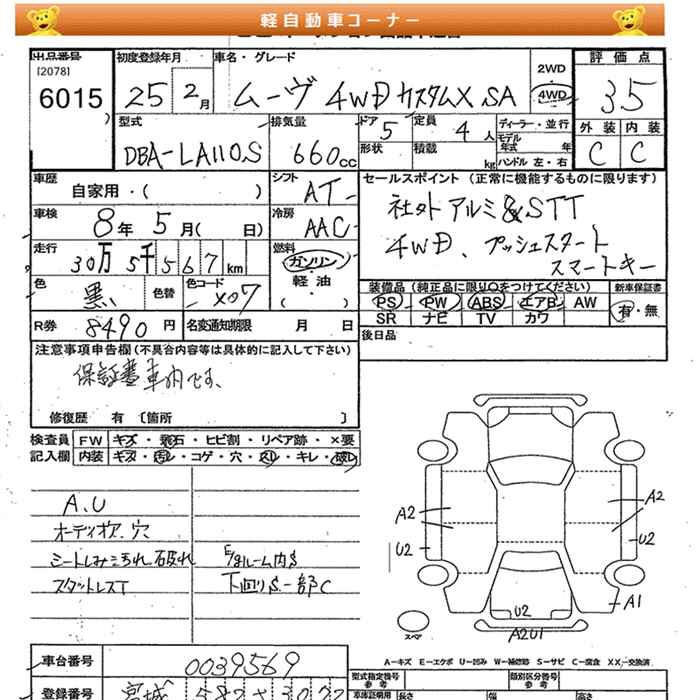 軽自動車コーナー
出品番号
[2078]
6015
初度登録年月
25年 2月
車名・グレード
ムーヴ 4WD カスタムX SA
2WD
4WD
評価点
3.5
外装 内装
C C
型式
DBA-LA110S
排気量
660cc
ドア
5
形状
定員
4人
積載
kg
ディーラー・並行
モデル年式 年
ハンドル 左・右
車歴
自家用・( )
シフト
AT
セールスポイント (正常に機能するものに限ります)
社外アルミ&STT
4WD、プッシュスタート
スマートキー
車検
8年 5月( 日)
冷房
AAC
走行
30万5千567km
燃料
ガソリン
・
軽油
・
( )
色
黒
色替
色コード
X07
装備品 (純正品に限り○をつけてください)
PS PW ABS エアB AW
SR ナビ TV カワ
新車保証書
有・無
R券 8490円
名変通知期限 月 日
後日品
注意事項申告欄 (不具合内容等は具体的に記入して下さい)
保証書車内です、
修復歴 有 〔箇所 〕
検査員記入欄
FW キズ・飛石・ヒビ割・リペア跡・×要
内装 キズ・汚レ・コゲ・穴・スレ・キレ・破レ
A.U
オーディオア.穴
シートしみこ汚れ、破れ
スタットレスT
E/gルーム内S
下回りS一部C
A2
A2
U2
U2
U2
A1
A2U1
スペア
A-キズ E-エクボ U-凹み W-補修跡 S-サビ C-腐食 XX-交換済
車台番号
0039569
型式指定番号
参考
類別区分番号
参考
登録番号
宮城
車庫証明用
長さ
幅
高さ